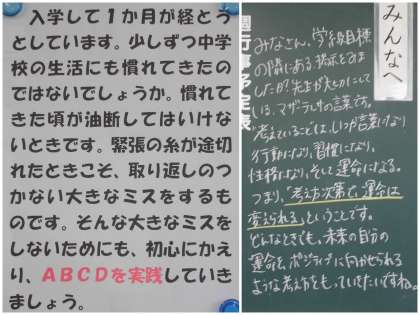 入学して1か月が経とう
としています。少しずつ中学
校の生活にも慣れてきたの
ではないでしょうか。慣れて
きた頃が油断してはいけな
いときです。緊張の糸が途切
れたときこそ、取り返しのつ
かない大きなミスをするも
のです。そんな大きなミスを
しないためにも、初心にかえ
り、ABCDを実践していき
ましょう。
行事予定表
みんなへ
みなさん、学級目標
の間にある掲示をみま
したか?先生が大切にして
いる、マザーテレサの言葉です。
考えていることは、いつか言葉になり
行動になり、習慣になり、
性格になり、そして運命になる。
つまり、「考え方次第で、運命は
変えられる」ということです。
どんなときでも、未来の自分の
運命を、ポジティブに向かせられる
ような考え方をもっていきたいですね。